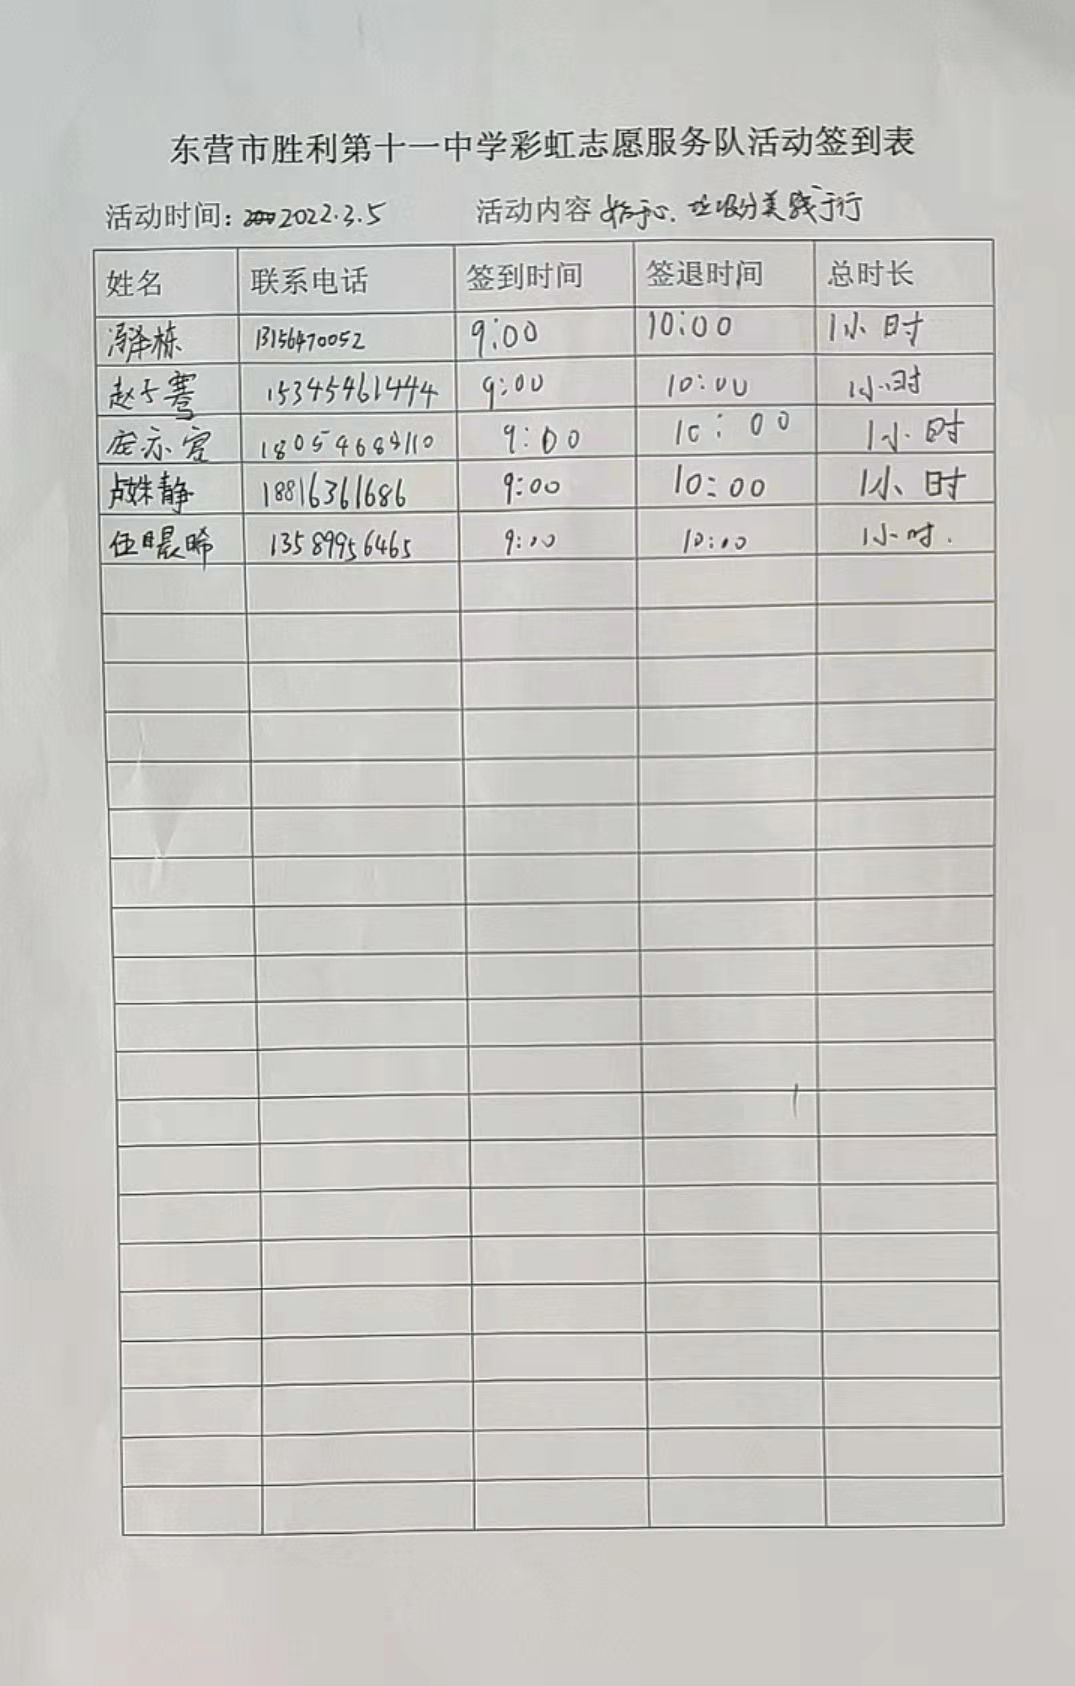 东营市胜利第十一中学彩虹志愿服务队活动签到表
活动时间: 2022.3.5 活动内容 始于心.垃圾分类践于行
姓名 联系电话 签到时间 签退时间 总时长
冯泽栋 13156470052 9:00 10:00 1小时
赵子骞 15345461444 9:00 10:00 1小时
庞示宽 1805468 110 9:00 10:00 1小时
卢姝静 18816361686 9:00 10:00 1小时
伍晨晞 13589956465 9:00 10:00 1小时.